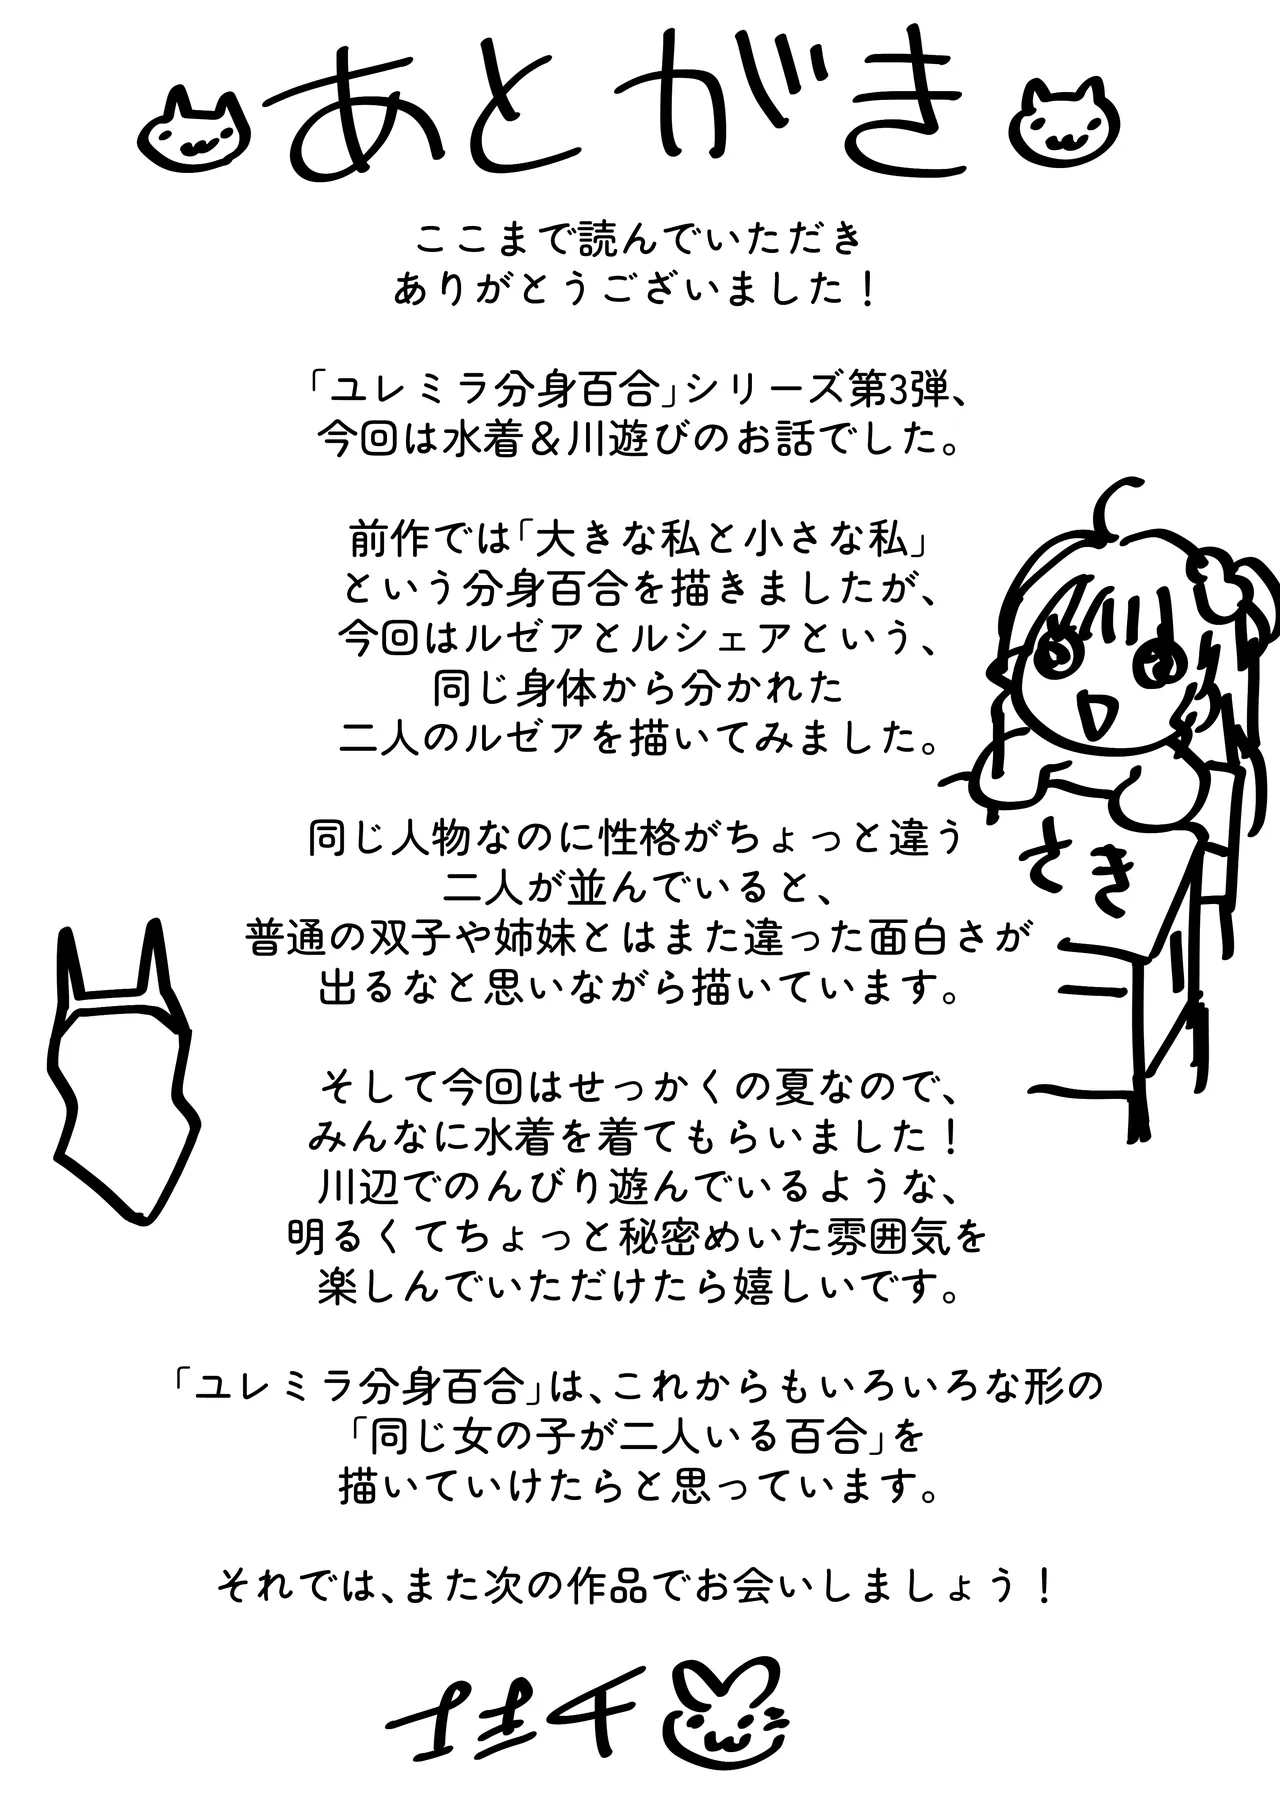 あとがき
ここまで読んでいただき
ありがとうございました！
「ユレミラ分身百合」シリーズ第3弾、
今回は水着＆川遊びのお話でした。
前作では「大きな私と小さな私」
という分身百合を描きましたが、
今回はルゼアとルシェアという、
同じ身体から分かれた
二人のルゼアを描いてみました。
同じ人物なのに性格がちょっと違う
二人が並んでいると、
普通の双子や姉妹とはまた違った面白さが
出るなと思いながら描いています。
さき
そして今回はせっかくの夏なので、
みんなに水着を着てもらいました！
川辺でのんびり遊んでいるような、
明るくてちょっと秘密めいた雰囲気を
楽しんでいただけたら嬉しいです。
「ユレミラ分身百合」は、これからもいろいろな形の
「同じ女の子が二人いる百合」を
描いていけたらと思っています。
それでは、また次の作品でお会いしましょう！